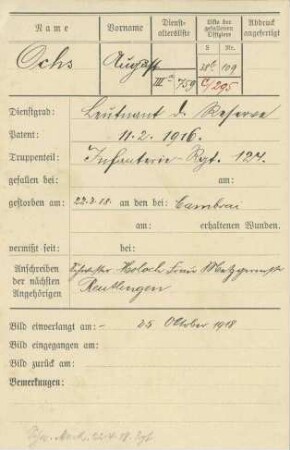 Name Vorname Dienst-altersliste Liste der gefallenen Offiziere Abdruck angefertigt
S Nr.
Ochs August III 759 38 109
C/295
Dienstgrad: Leutnant d. Reserve
Patent: 11.2.1916.
Truppenteil: Infanterie-Rgt. 127.
gefallen bei: am:
gestorben am: 22.3.18. an den bei: Cambrai
am: erhaltenen Wunden.
vermißt seit: bei:
Anschreiben der nächsten Angehörigen
Schwester Holoch Frau
Reutlingen
Bild einverlangt am: - 25 Oktober 1918
Bild eingegangen am:
Bild zurück am:
Bemerkungen: